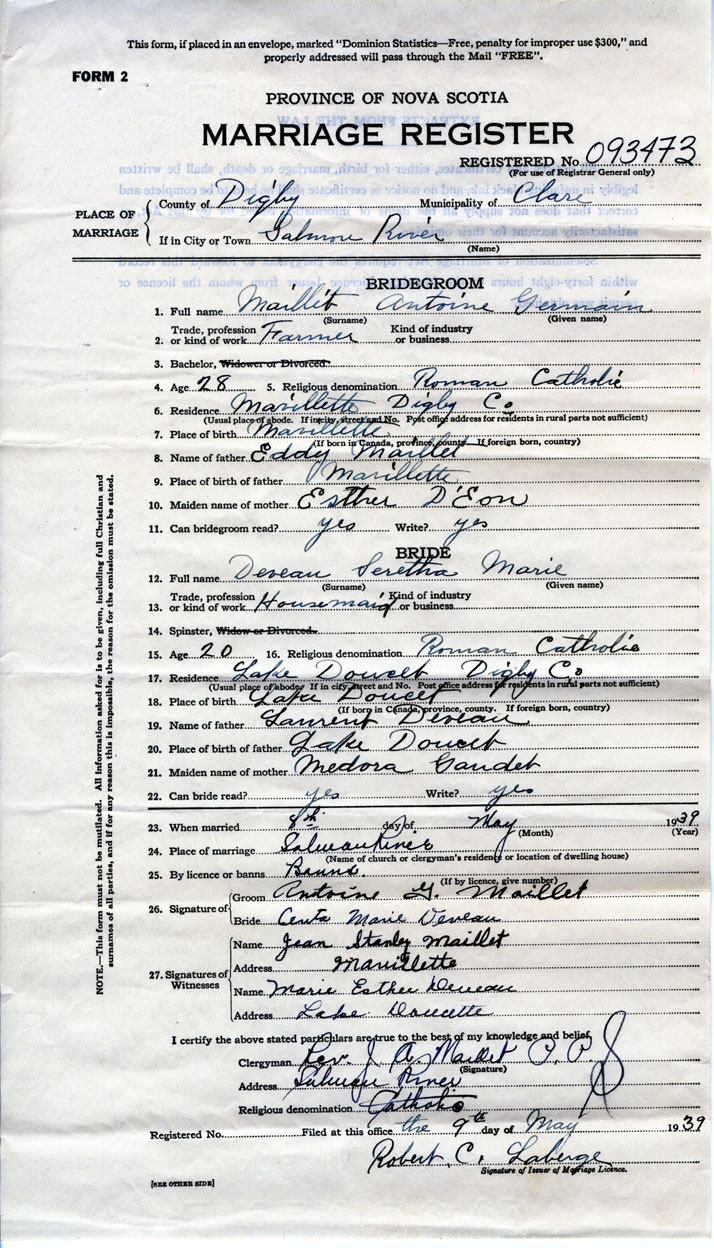 This form, if placed in an envelope, marked "Dominion Statistics—Free, penalty for improper use $300," and
properly addressed will pass through the Mail "FREE".
FORM 2
PROVINCE OF NOVA SCOTIA
MARRIAGE REGISTER
REGISTERED No. 093473
(For use of Registrar General only)
PLACE OF MARRIAGE
County of Digby Municipality of Clare
If in City or Town Salmon River
(Name)
BRIDEGROOM
1. Full name Maillet Antoine Germain
(Surname) (Given name)
2. Trade, profession or kind of work Farmer Kind of industry or business
3. Bachelor, Widower or Divorced
4. Age 28 5. Religious denomination Roman Catholic
6. Residence Mavillette Digby Co
(Usual place of abode. If in city, street and No. Post office address for residents in rural parts not sufficient)
7. Place of birth Mavillette
(If born in Canada, province, county. If foreign born, country)
8. Name of father Eddy Maillet
9. Place of birth of father Mavillette
10. Maiden name of mother Esther D'Eon
11. Can bridegroom read? yes Write? yes
BRIDE
12. Full name Deveau Seretha Marie
(Surname) (Given name)
13. Trade, profession or kind of work Housemaid Kind of industry or business
14. Spinster, Widow or Divorced
15. Age 20 16. Religious denomination Roman Catholic
17. Residence Lake Doucet Digby Co
(Usual place of abode. If in city street and No. Post office address for residents in rural parts not sufficient)
18. Place of birth Lake Doucet
(If born in Canada, province, county. If foreign born, country)
19. Name of father Laurent Deveau
20. Place of birth of father Lake Doucet
21. Maiden name of mother Medora Gaudet
22. Can bride read? yes Write? yes
23. When married 8th day of May 1939
(Month) (Year)
24. Place of marriage Salmon River
(Name of church or clergyman's residence or location of dwelling house)
25. By licence or banns Banns.
(If by licence, give number)
26. Signature of
Groom Antoine G. Maillet
Bride Marie Deveau
27. Signatures of Witnesses
Name Jean Stanley Maillet
Address Mavillette
Name Marie Esther Deveau
Address Lake Doucette
I certify the above stated particulars are true to the best of my knowledge and belief,
Clergyman Rev. J. A. Maillet P. P.
(Signature)
Address Salmon River
Religious denomination Catholic
Registered No. Filed at this office the 9th day of May 1939
Robert. C. Laberge
Signature of Issuer of Marriage Licence.
[SEE OTHER SIDE]
NOTE.—This form must not be mutilated. All information asked for is to be given, including full Christian and
surnames of all parties, and if for any reason this is impossible, the reason for the omission must be stated.